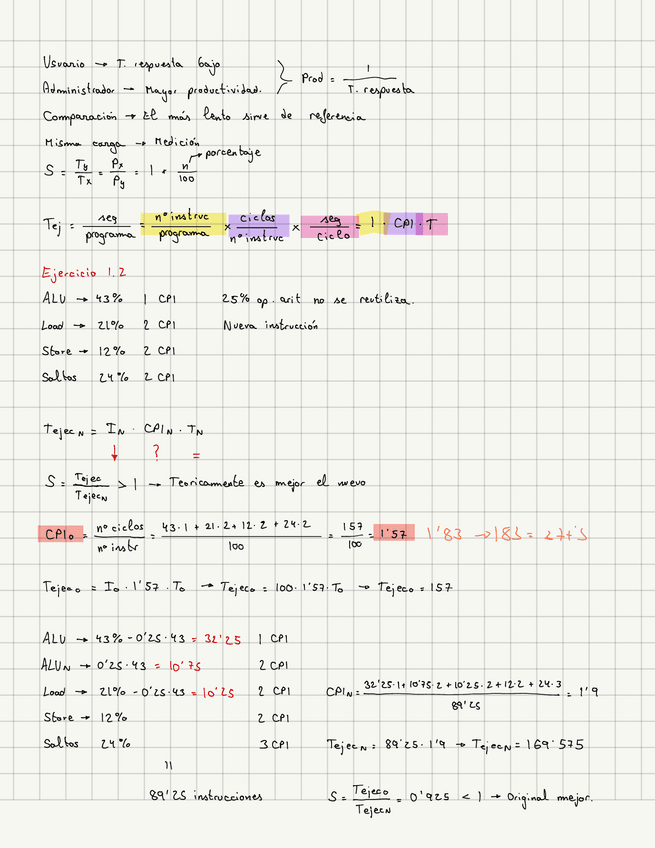 Usuario → T. respuesta bajo
Administrador → Mayor productividad. } Prod = 1 / T. respuesta
Comparación → El más lento sirve de referencia
Misma carga → Medición
S = Ty/Tx = Px/Py = 1 + n/100 → porcentaje
Tej = seg/programa = nº instruc/programa × ciclos/nº instruc × seg/ciclo = I · CPI · T
Ejercicio 1.2
ALU → 43% 1 CPI 25% op. arit no se reutiliza.
Load → 21% 2 CPI Nueva instrucción
Store → 12% 2 CPI
Saltos 24% 2 CPI
Tejec N = I N · CPI N · T N
↓ ? =
S = Tejec/Tejec N > 1 → Teoricamente es mejor el nuevo
CPI o = nº ciclos/nº instr = 43·1 + 21·2 + 12·2 + 24·2/100 = 157/100 = 1'57 1'83 → 183 =
Tejec o = I o · 1'57 · T o → Tejec o = 100 · 1'57 · T o → Tejec o = 157
ALU → 43% - 0'25·43 = 32'25 1 CPI
ALU N → 0'25·43 = 10'75 2 CPI
Load → 21% - 0'25·43 = 10'25 2 CPI CPI N = 32'25·1 + 10'75·2 + 10'25·2 + 12·2 + 24·3/89'25 = 1'9
Store → 12% 2 CPI
Saltos 24% 3 CPI Tejec N = 89'25 · 1'9 → Tejec N = 169'575
=
89'25 instrucciones S = Tejec o/Tejec N = 0'925 < 1 → Original mejor.